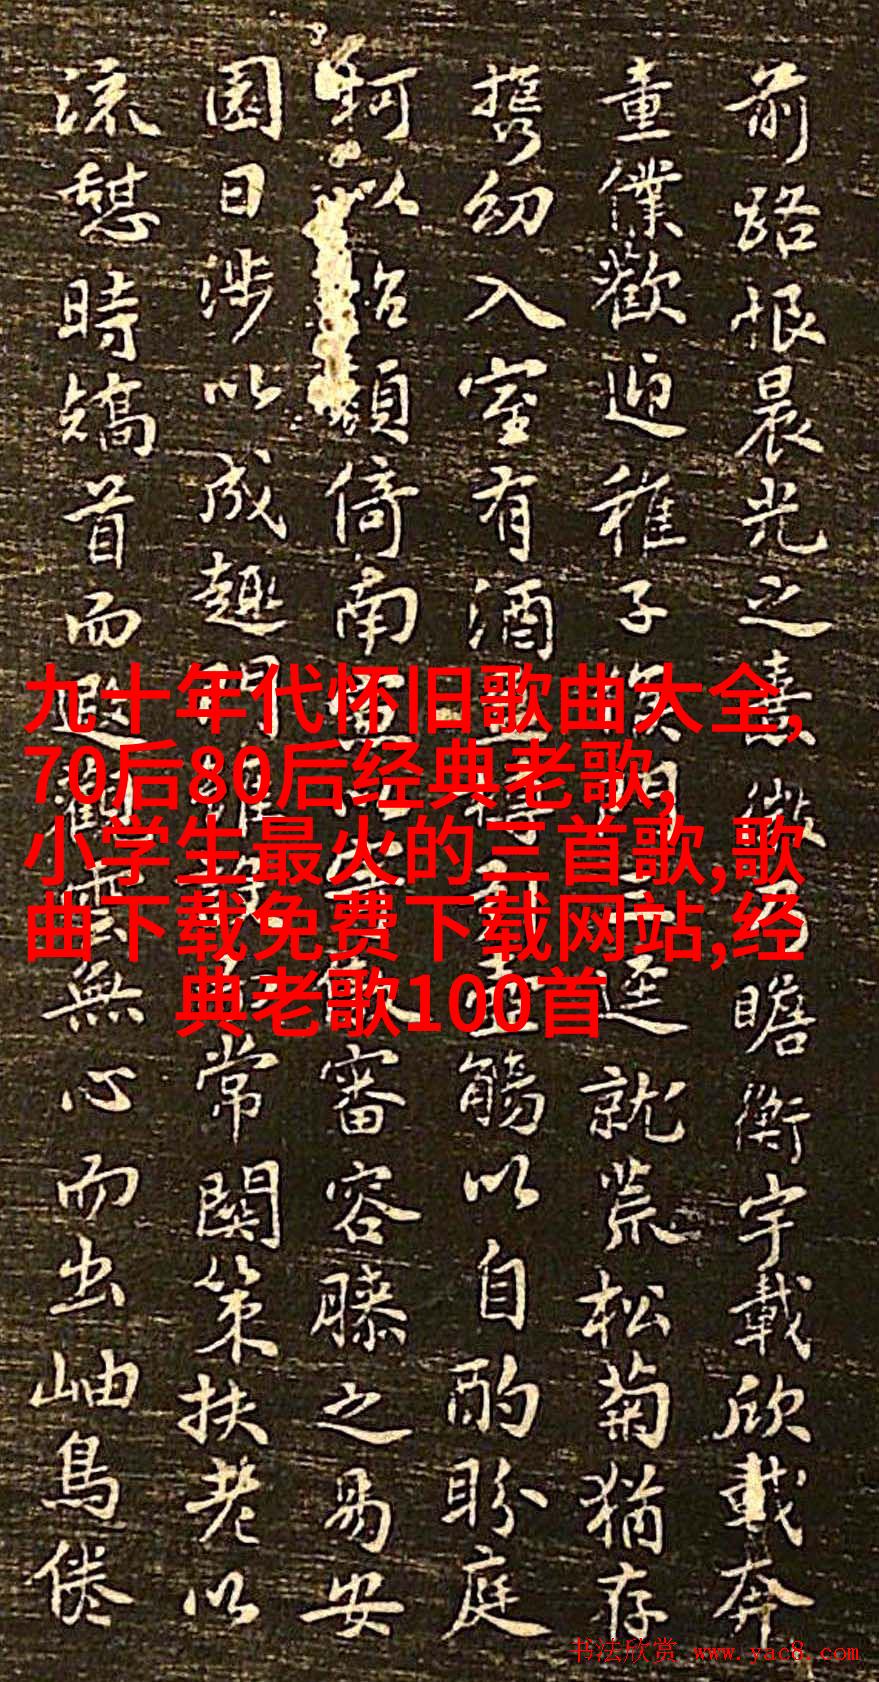 前路恨晨光之憙微乃瞻衡宇載欣載奔
童僕歡迎稚子候門三逕就荒松菊猶存
攜幼入室有酒盈樽引壺觴以自酌盼庭
柯以怡顏倚南窗以寄傲審容膝之易安
園日涉以成趣門雖設而常關策扶老以
流憩時矯首而遐觀雲無心而出岫鳥倦
九十年代怀旧歌曲大全,
70后80后经典老歌,
小学生最火的三首歌,歌
曲下载免费下载网站,经
典老歌100首
书法欣赏 www.yac8.com